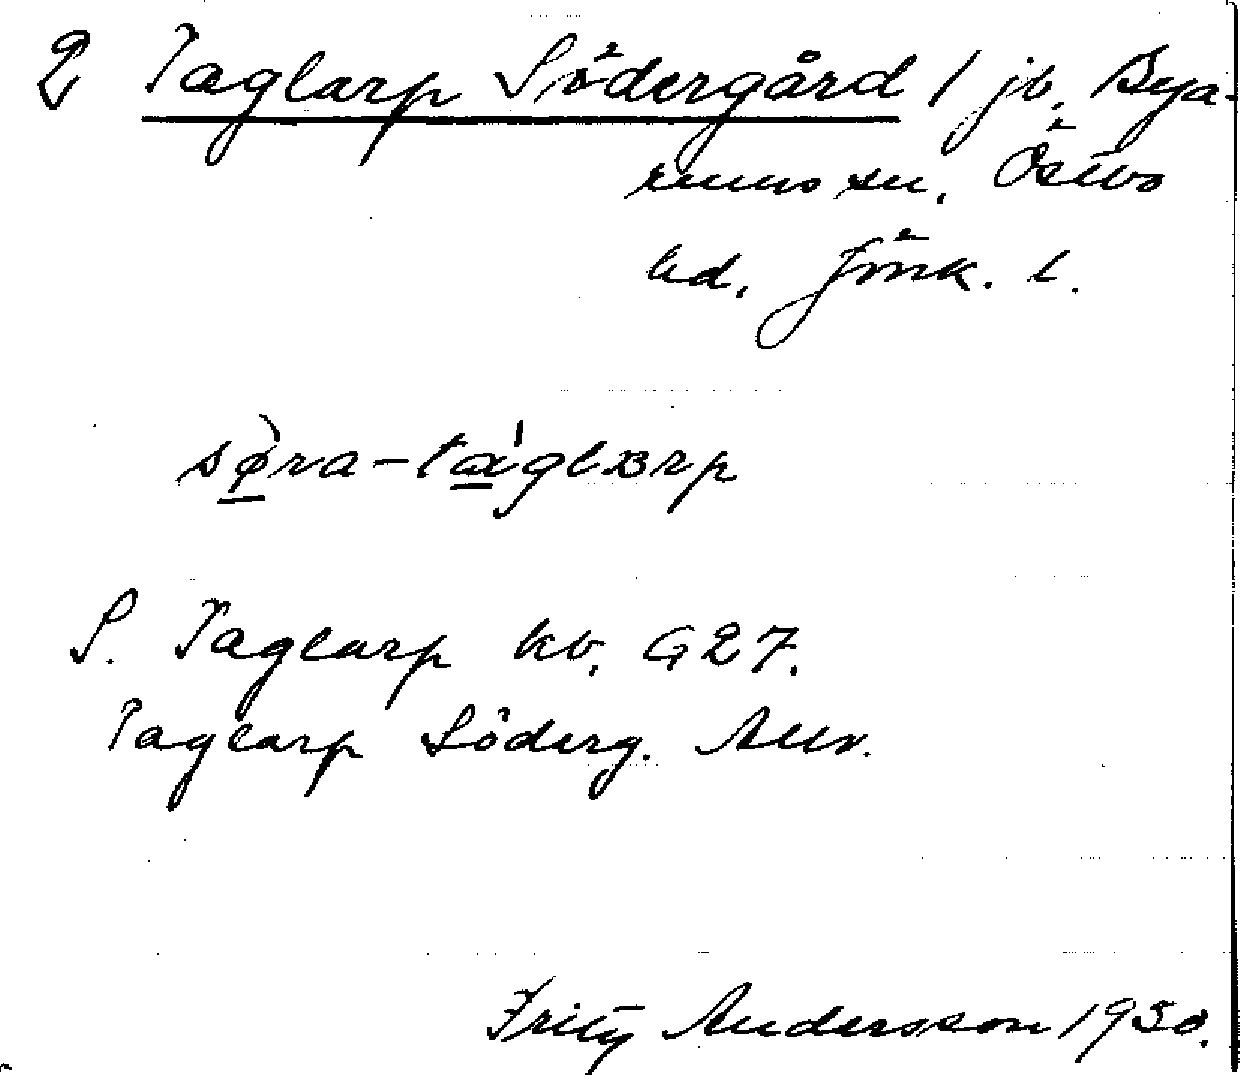 Taglarp Södergård 1 jb. Bya-
rums sn. Östbo
hd. Jönk. l.
S. Taglarp kb. G27.
Taglarp Söderg. Allm.
Fritz Andersson 1930.